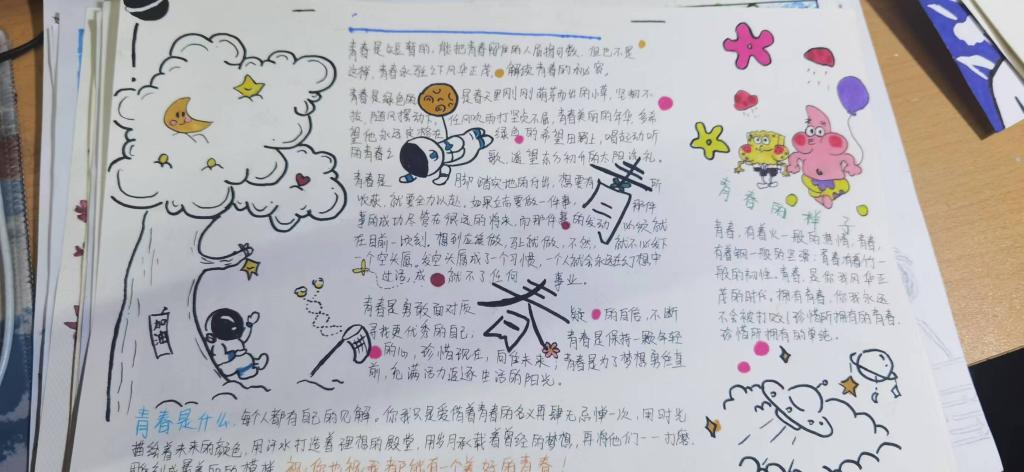 青春是短暂的,能把青春留住的人屈指可数,但也不是
这样,青春永驻立下风华正茂,解读青春的秘密。
青春是绿色的 是春天里刚刚萌芽而出的小草,坚韧不
拔,随风摆动 任何风雨打坚定不屈,青春美丽的年华多希
望他永远定格在 绿色的希望田野上,唱起动听
的青春之 歌,遥望东方初升的太阳
青春是 脚踏实地的付出,想要有 所
收获,就要全力以赴,如果立志要做一件事, 那件
事的成功尽管在很远的将来,而那件事的发动 必须就
在目前一顷刻,想到应该做,马上就做,不然, 就不必发下
个空头愿,发空头愿成了一个习惯,一个人就会永远在幻想中
过活,成 就不了任何 事业。
青春是勇敢面对质 疑的自信,不断
寻找更优秀的自己, 青春是保持一颗年轻
的心,珍惜现在,向往未来;青春是为了梦想勇往直
前,充满活力追逐生活的阳光。
青春
加油
青春的样子
青春,有着火一般的热情,青春,
有着钢一般的坚强;青春有着竹一
般的韧性,青春,是你我风华正
茂的时代,拥有青春,你我永远
不会被打败!珍惜所拥有的青春,
珍惜所拥有的单纯。
青春是什么,每个人都有自己的见解。你我只是爱借着青春的名义再肆无忌惮一次,用时光
描绘着未来的颜色,用汗水打造着理想的殿堂,用岁月承载着曾经的梦想,再将他们一一打磨,
雕刻成最美的的模样 祝:你也祝我都能有一个美好的青春!